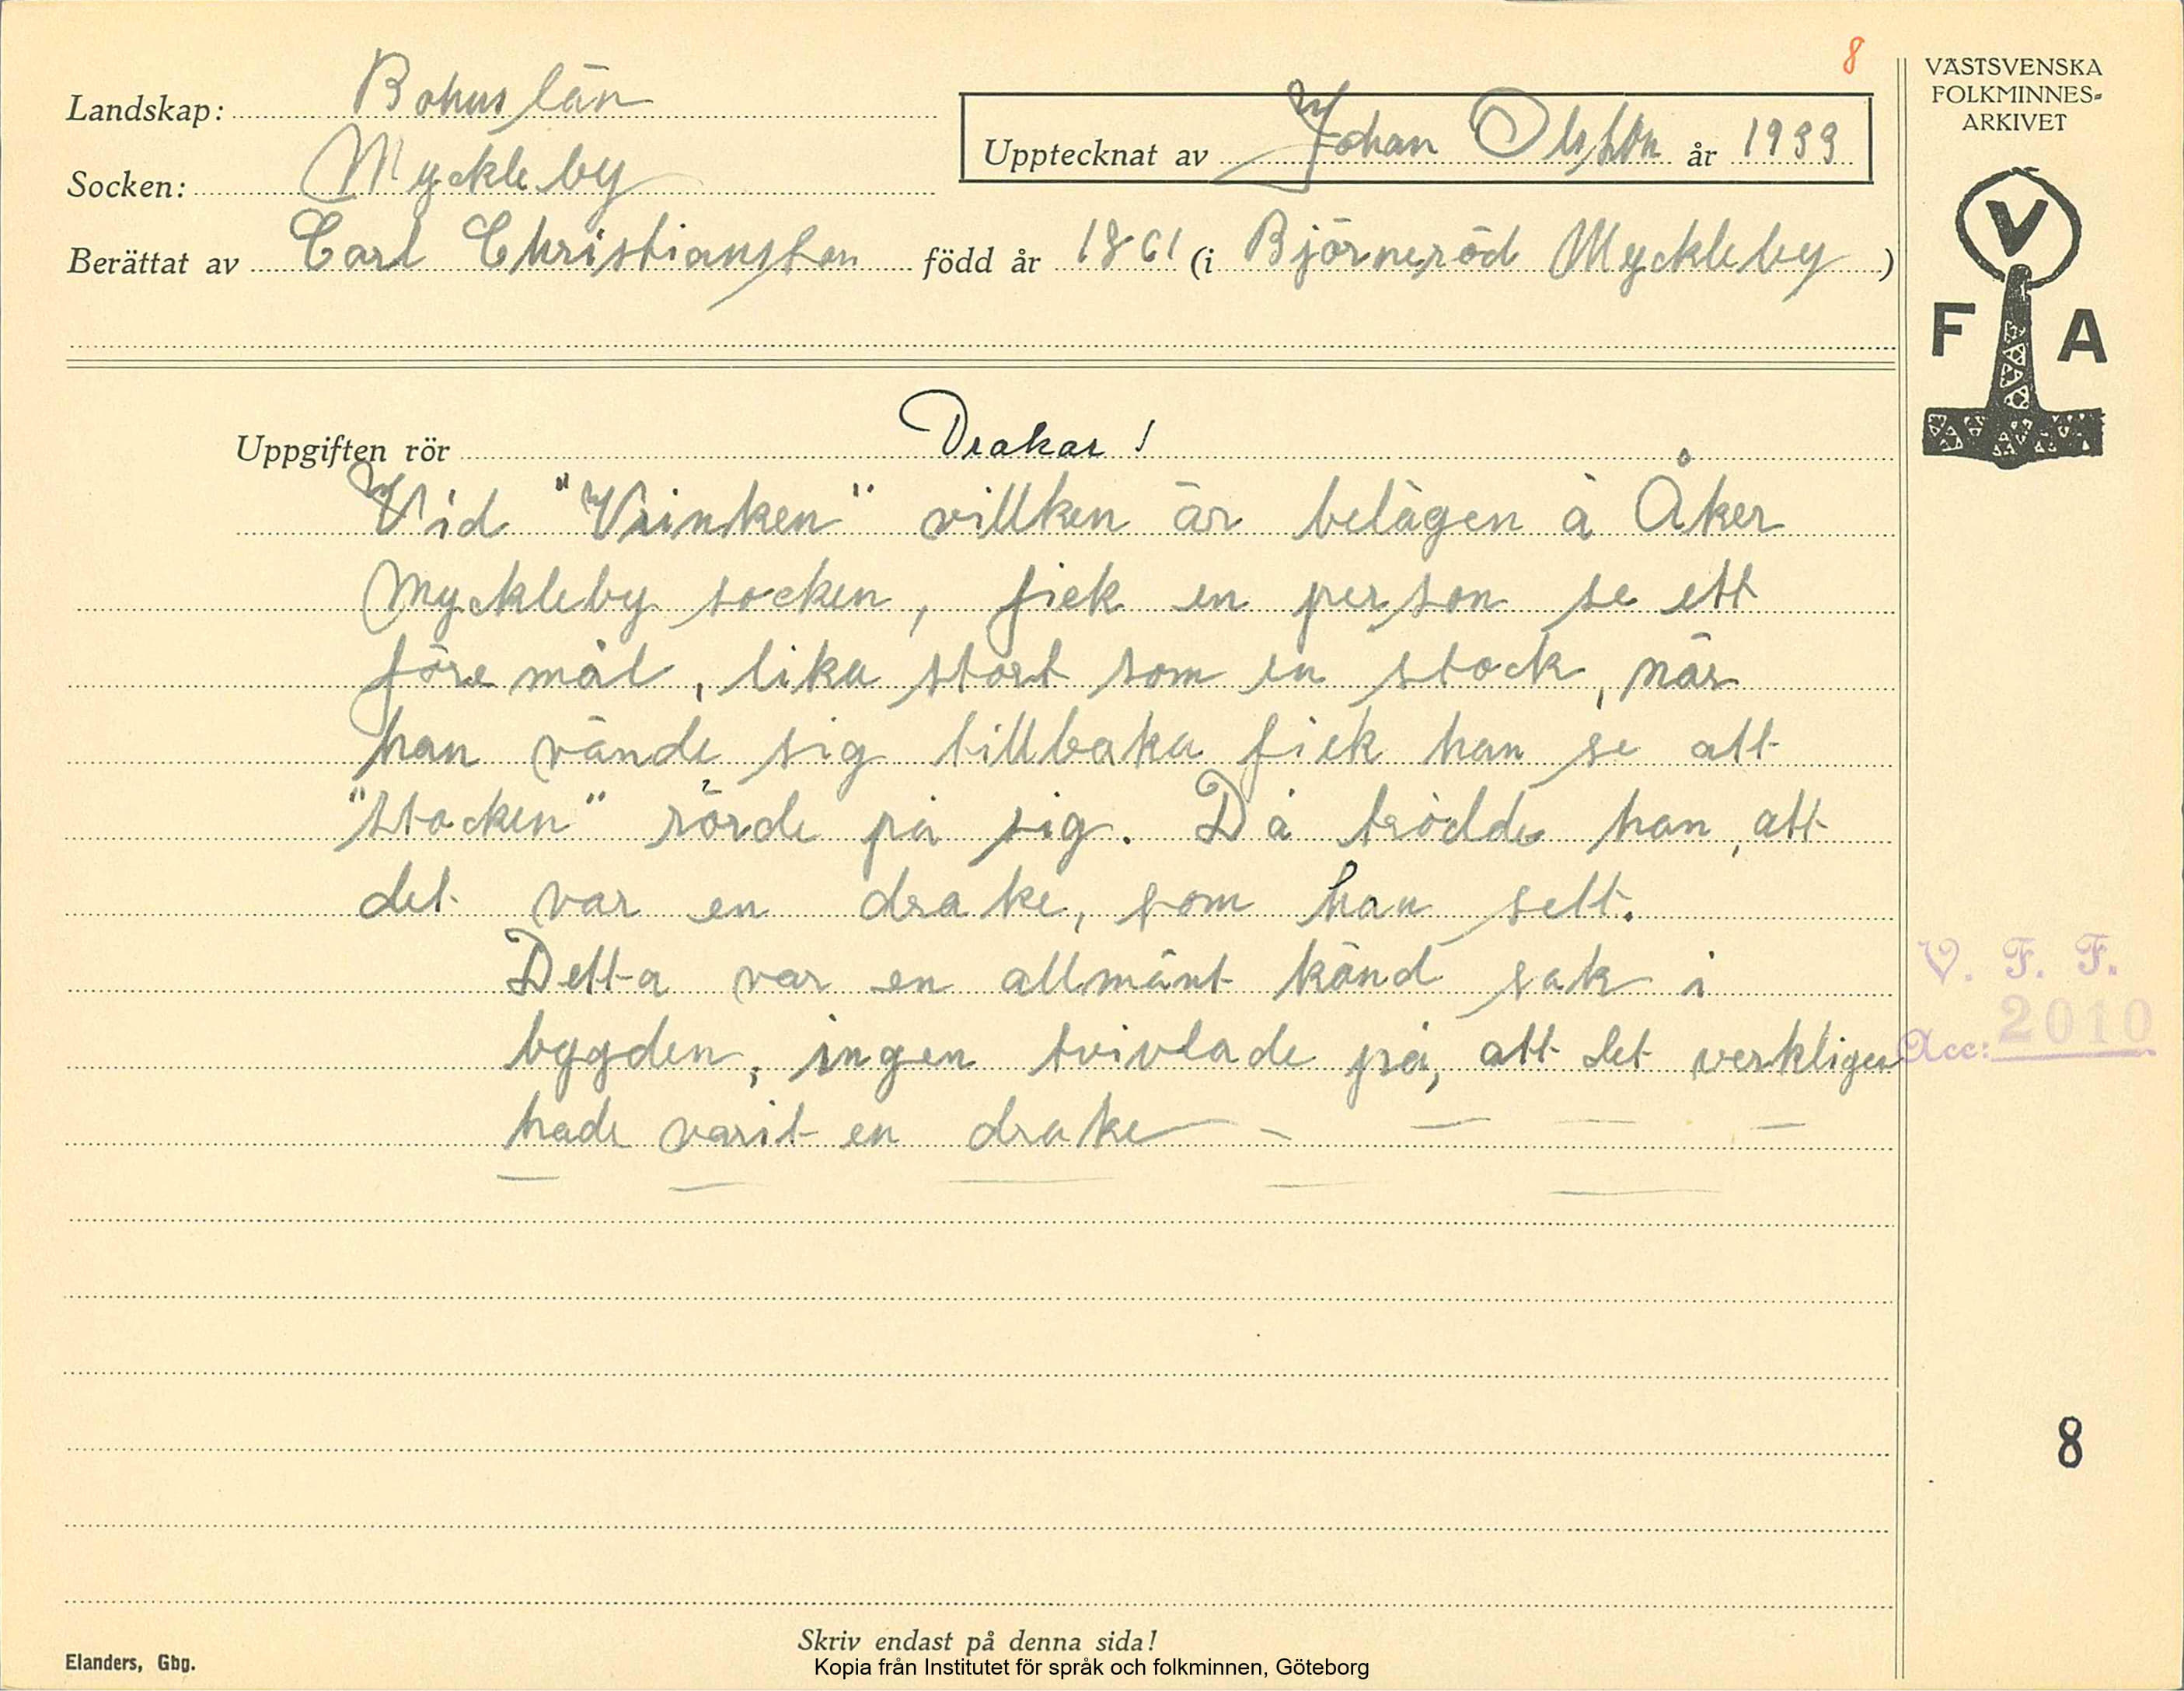 8
Landskap: Bohuslän
Upptecknat av Johan Olsson år 1933
Socken: Myckleby
Berättat av Carl Christiansson född år 1861 (i Björneröd Myckleby)
VÄSTSVENSKA
FOLKMINNES-
ARKIVET
V
F A
Uppgiften rör Drakar!
Vid "Vrinken" villken är belägen å Åker
Myckleby socken, fick en person se ett
föremål, lika stort som en stock, när
han vände sig tillbaka fick han se att
"stocken" rörde på sig. Då trodde han, att
det var en drake, som han sett.
Detta var en allmänt känd sak i
bygden, ingen tvivlade på, att det verkligen
hade varit en drake
V. F. F.
Acc: 2010
8
Skriv endast på denna sida!
Elanders, Gbg.
Kopia från Institutet för språk och folkminnen, Göteborg